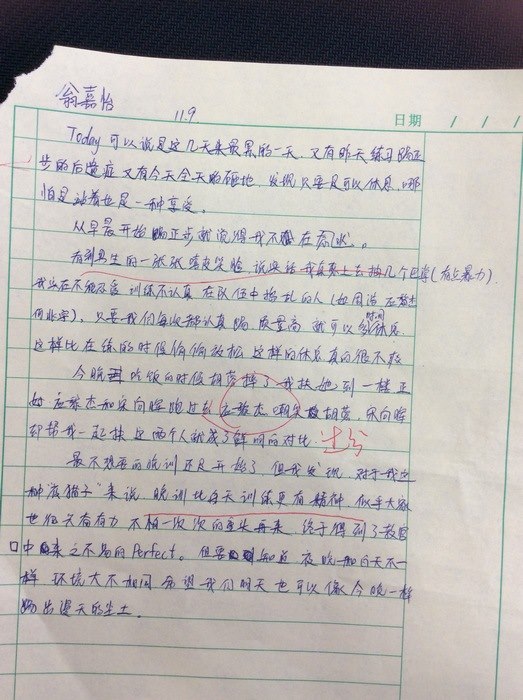 翁嘉怡
11.9.
日期 / / /
Today 可以说是这几天来最累的一天,又有昨天练习踢正
步的后遗症 又有今天全天的强地,发现只要是可以休息,哪
怕是站着也是一种享受。
从早晨开始 踢正步就说得我不 在
看到男生的一张张嬉皮笑脸,说实话 我真想上去抽几个巴掌(有点暴力)
我实在不能忍受 训练不认真 在队伍中捣乱的人(如周浩
只要我们每次都认真踢,质量高 就可以多休息时间
这样比在练的时候偷偷放松 这样的休息真的很不好
今晚 吃饭的时候胡莹摔了 我扶她到一楼 正
好 杰和宋向晖跑过去 杰嘲笑胡莹,宋向晖
却帮我一起扶 这两个人就成了鲜明的对比。
最不想要的晚训还是开始了 但我发现,对于我这
种"夜猫子"来说,晚训比白天训练更有精神,似乎大家
也很有力 一次次的重头再来 终于得到了教官
口中来之不易的Perfect。但要知道 夜晚和白天不一
样 环境大不相同 希望我们明天也可以像今晚一样
踢出漫天的尘土。